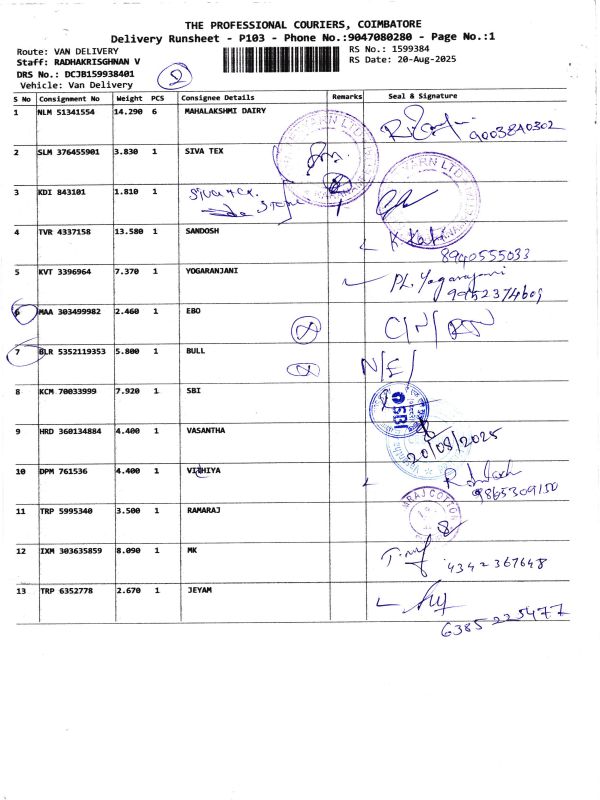 THE PROFESSIONAL COURIERS, COIMBATORE
Delivery Runsheet - P103 - Phone No.:9047080280 - Page No.:1
Route: VAN DELIVERY
RS No.: 1599384
Staff: RADHAKRISGHNAN V
RS Date: 20-Aug-2025
DRS No.: DCJB159938401
2
Vehicle: Van Delivery
S No Consignment No Weight PCS Consignee Details Remarks Seal & Signature
1 NLM 51341554 14.290 6 MAHALAKSHMI DAIRY
9003840302
2 SLM 376455901 3.830 1 SIVA TEX
3 KDI 843101 1.810 1
4 TVR 4337158 13.580 1 SANDOSH
8940555033
5 KVT 3396964 7.370 1 YOGARANJANI PL. Yogaranjani
9952374609
6 MAA 303499982 2.460 1 EBO
7 BLR 5352119353 5.800 1 BULL N/E/
8 KCM 70033999 7.920 1 SBI
SBI
9 HRD 360134884 4.400 1 VASANTHA
20/08/2025
10 DPM 761536 4.400 1 VITHIYA
9865309150
11 TRP 5995340 3.500 1 RAMARAJ
12 IXM 303635859 8.090 1 MK
4342367648
13 TRP 6352778 2.670 1 JEYAM
6385225477